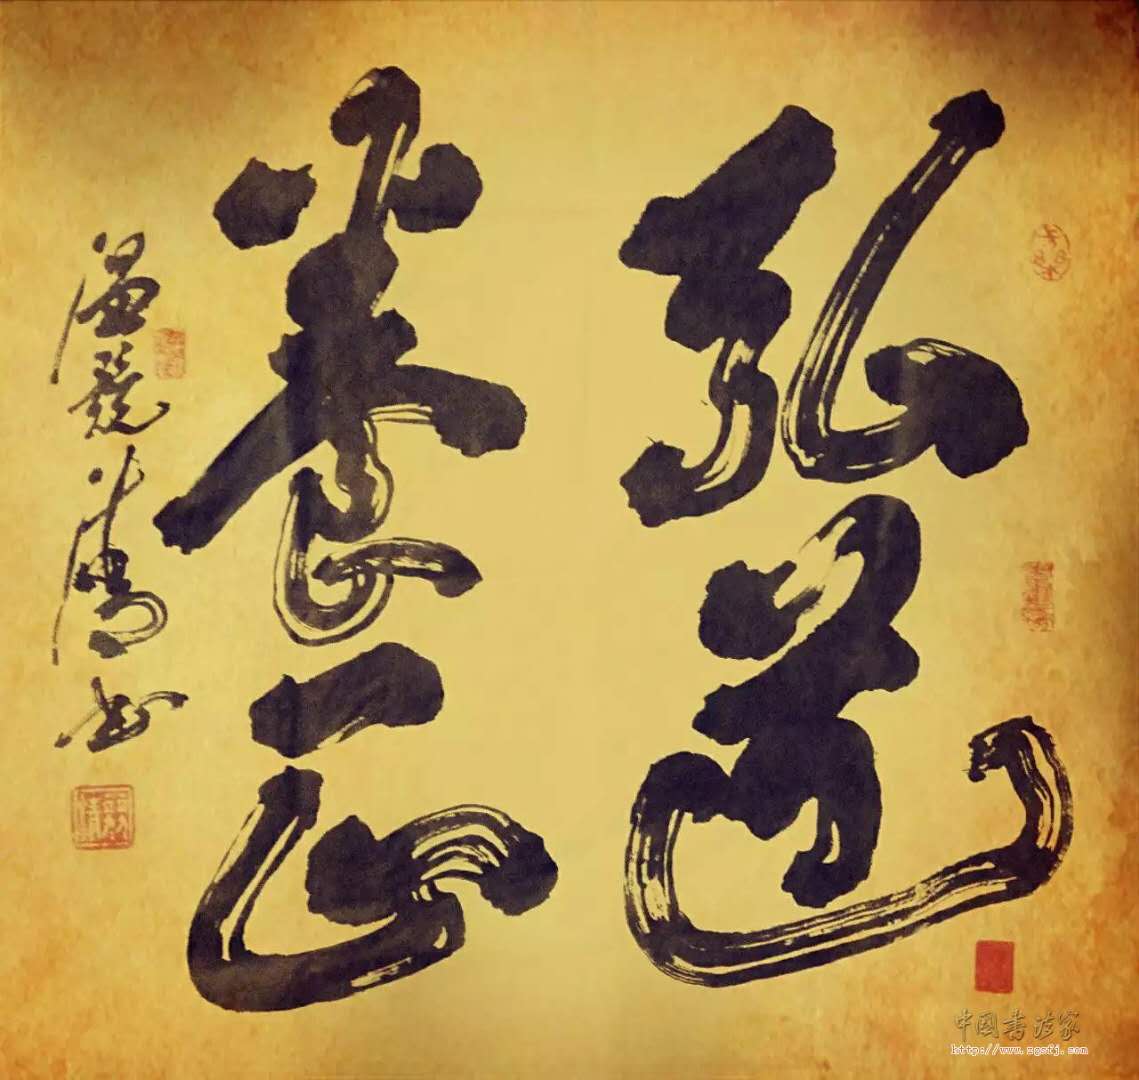 弘道
養正
温競 书
中國書法家
http://www.zgsfj.com